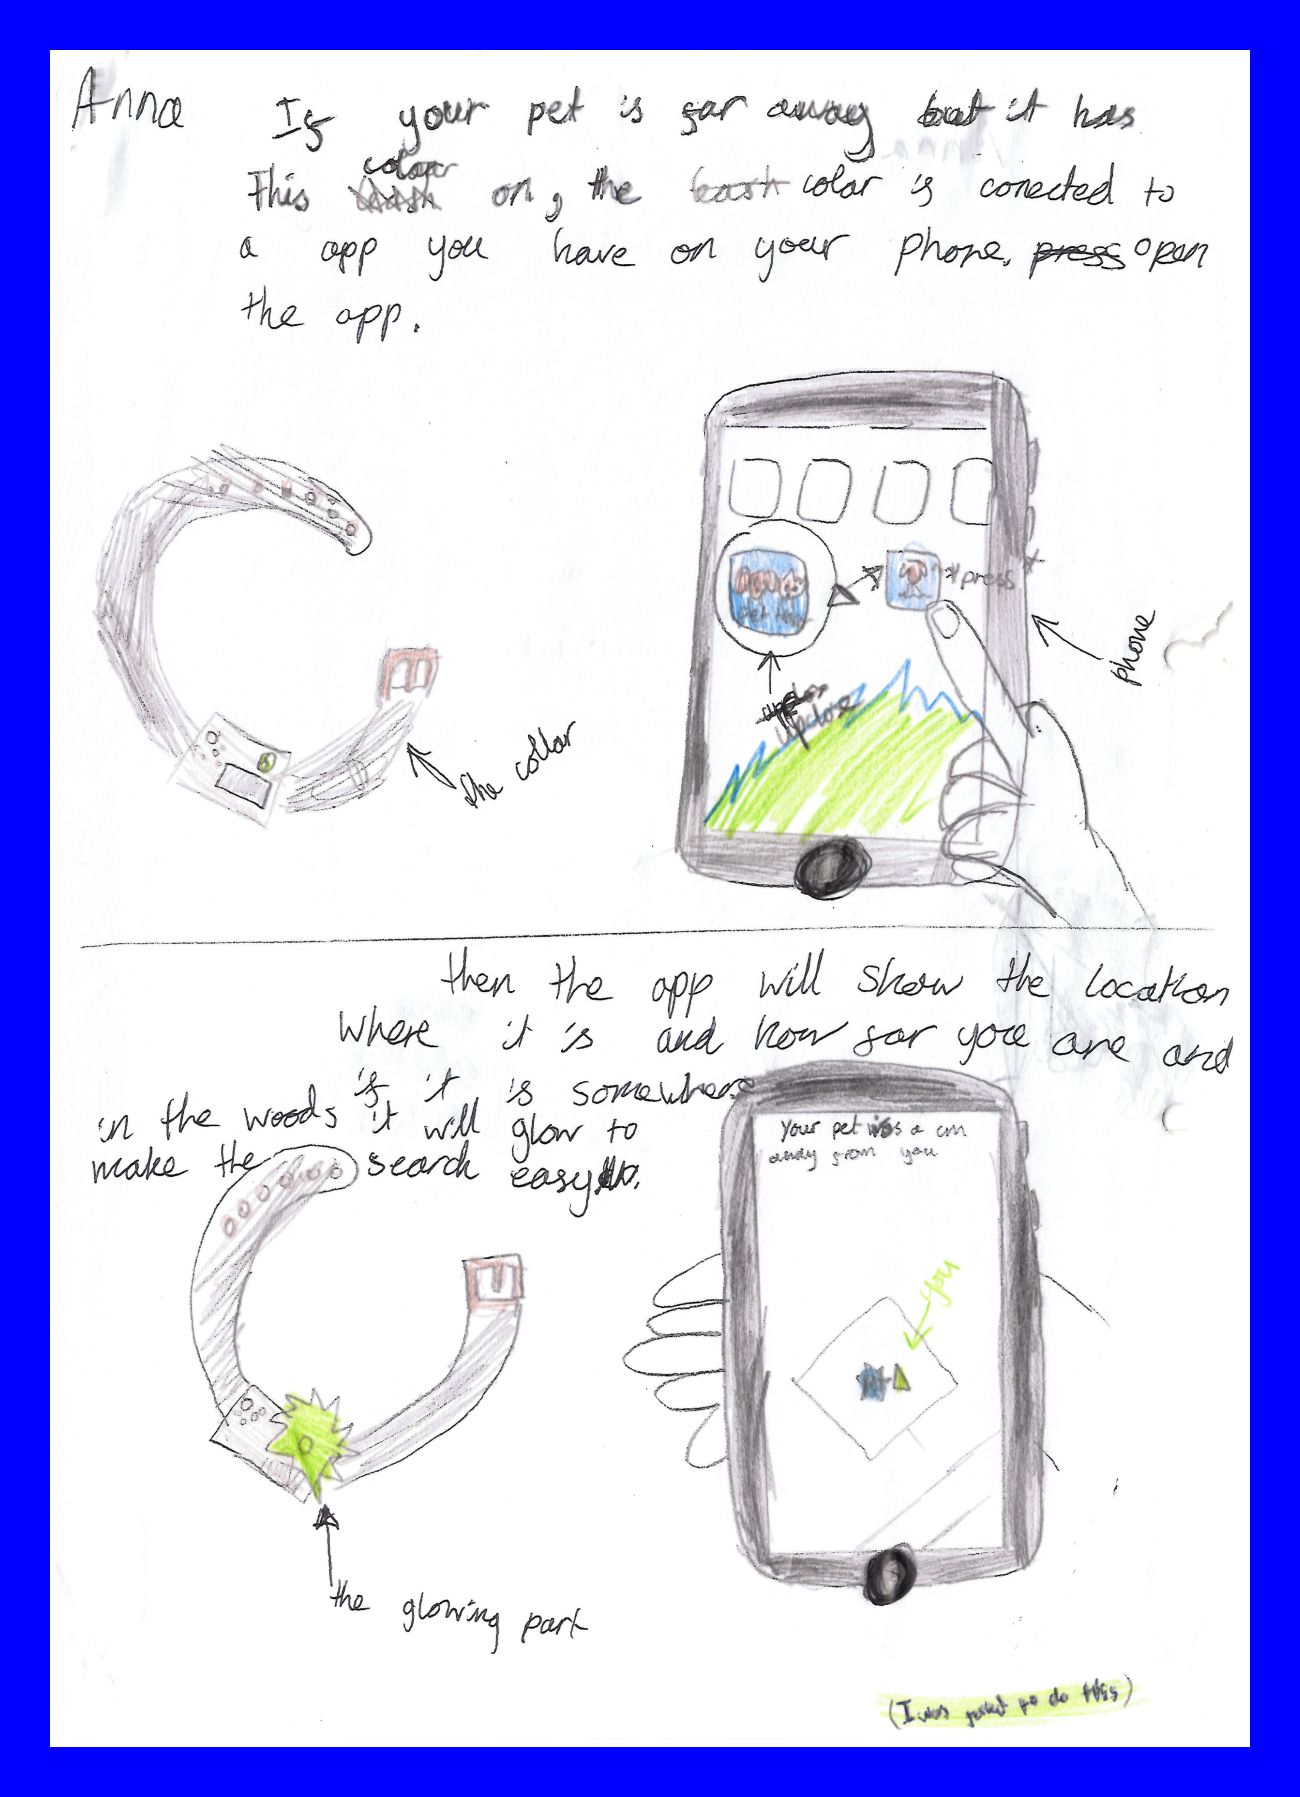 Anna
If your pet is far away but it has
This colar on, the colar is conected to
a app you have on your phone. press open
the app.
*press*
phone
upclose
the collar
then the app will show the location
where it is and how far you are and
if it is somewhere
in the woods it will glow to
make the search easy
Your pet is a cm
away from you
you
the glowing part
(I was forked to do this)